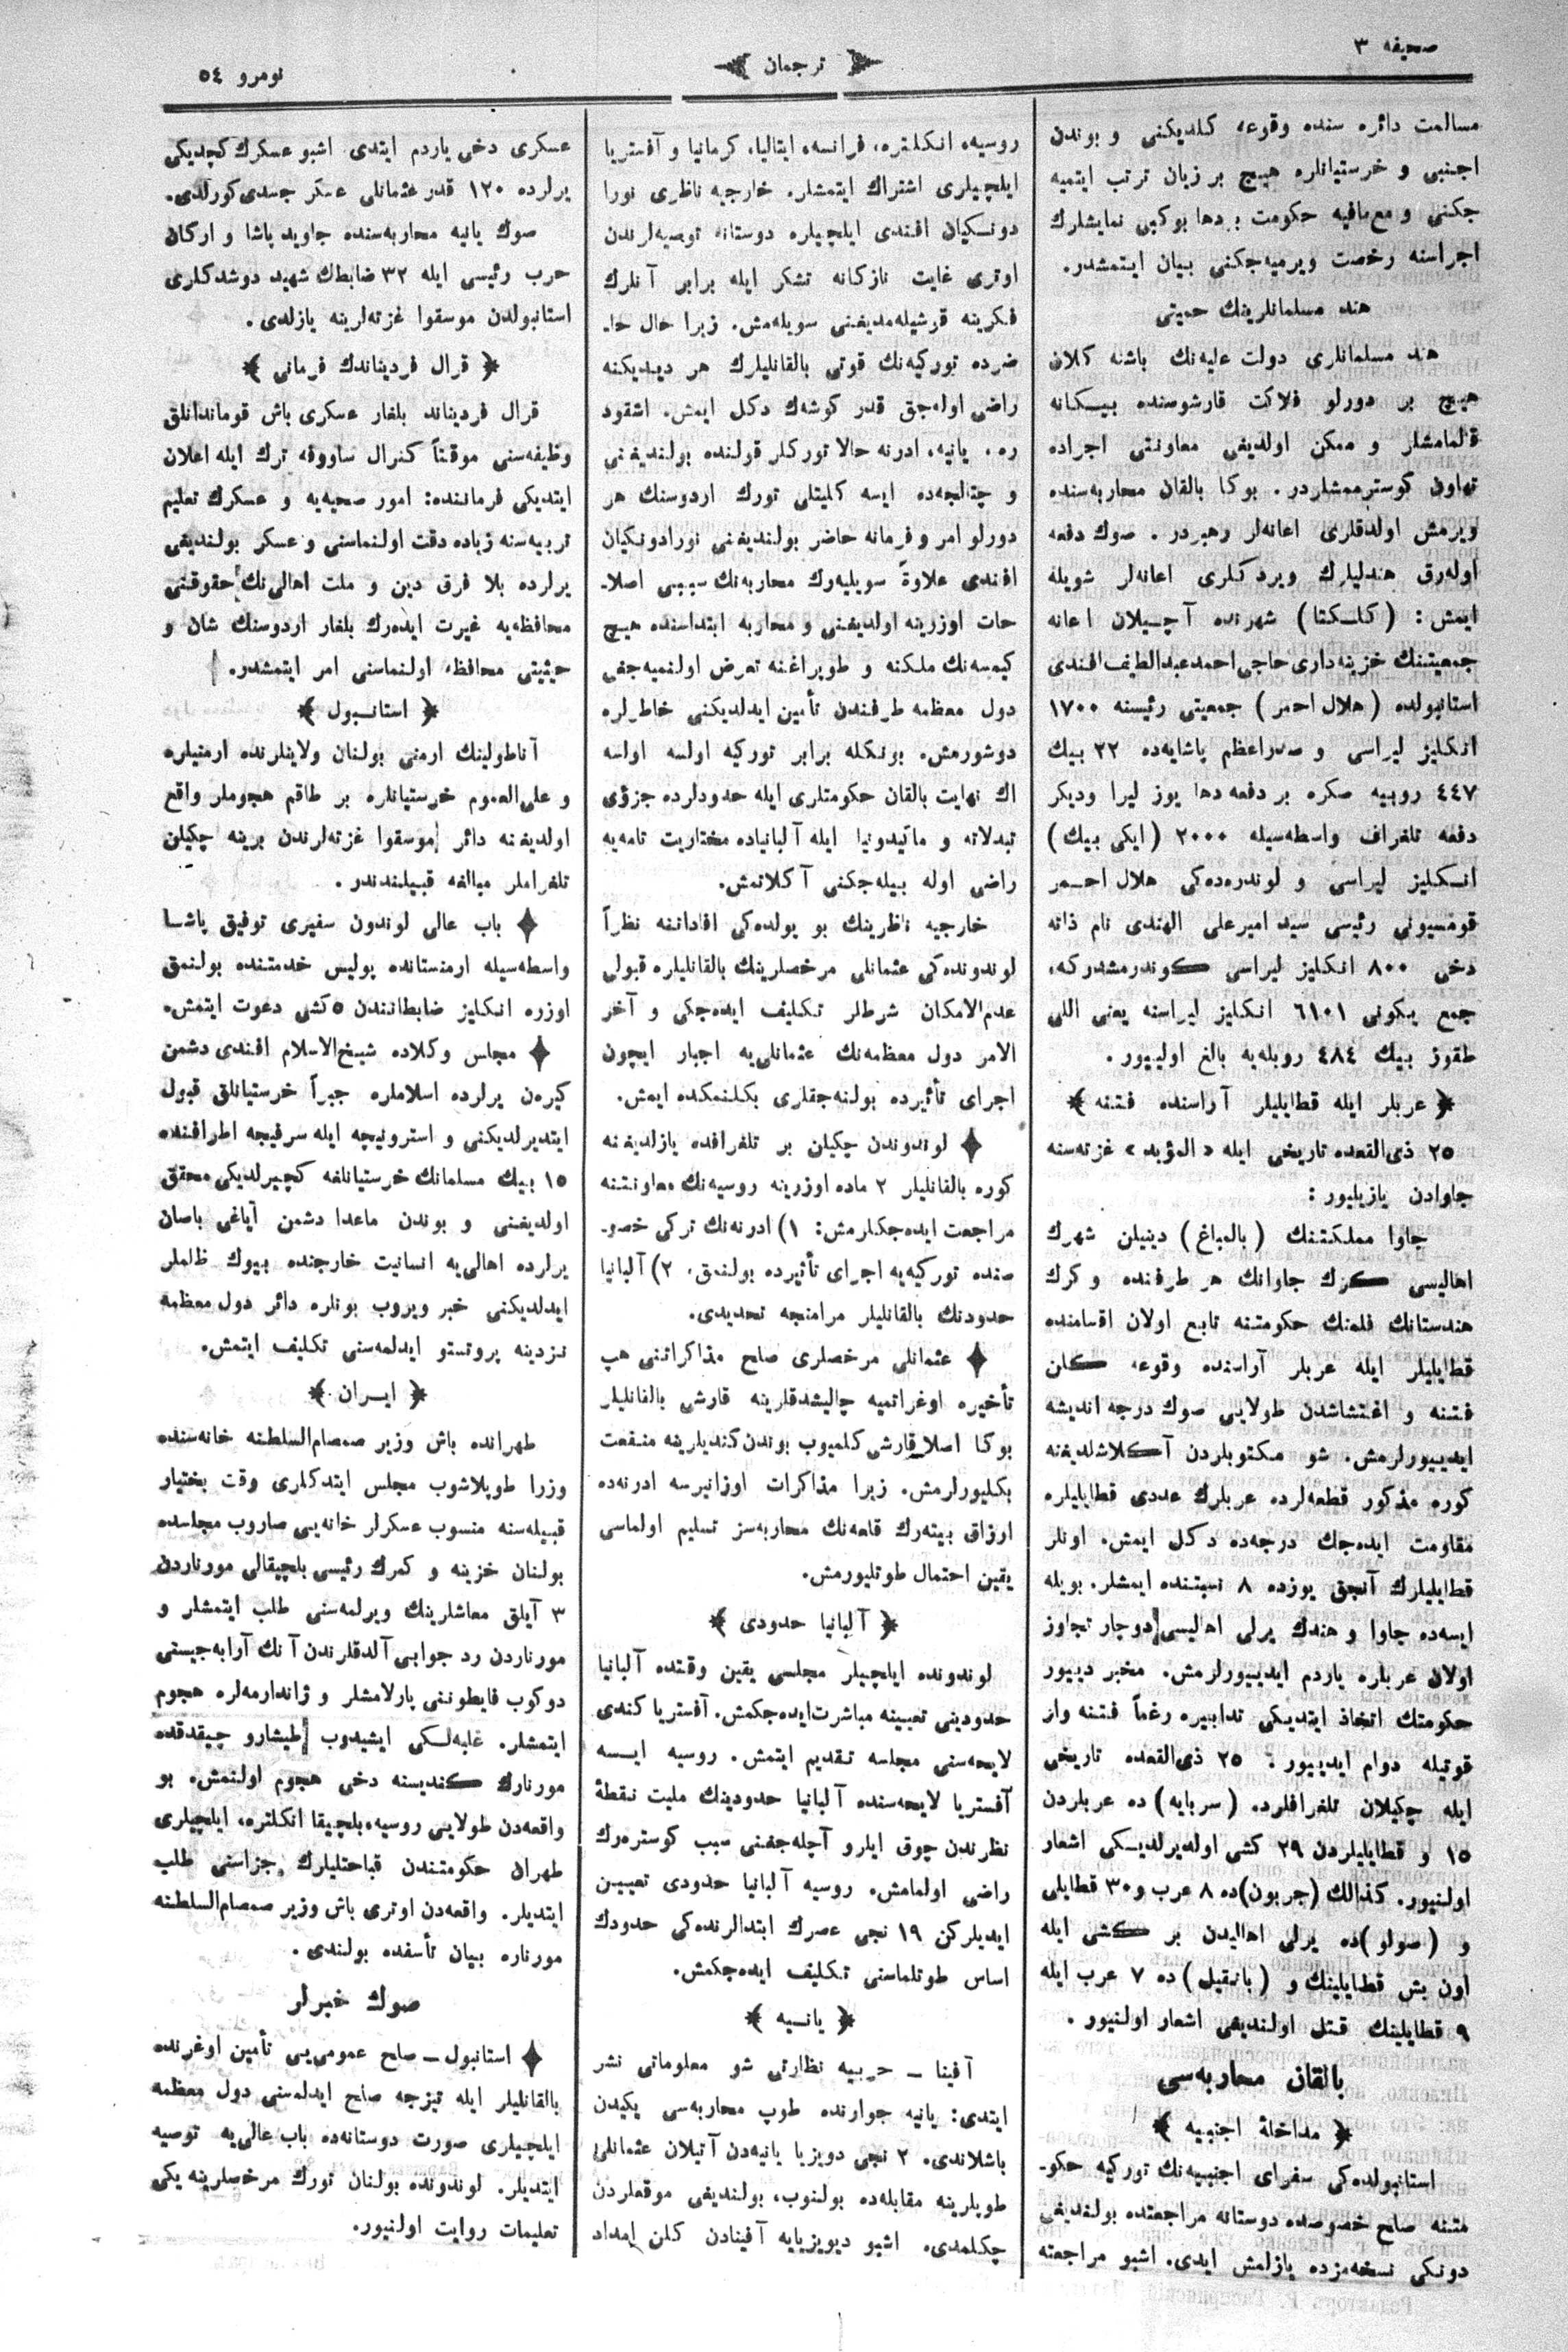 صحیفه ٣
ترجمان
نومرو ٥٤
مسالمت دائره سنده وقوعه کلدیکنی و بوندن
اجنبی و خرستیانلره هیچ بر زیان ترتب ایتمیه
جکنی و مع‌مافیه حکومت بر دها بوکبی نمایشلرك
اجراسنه رخصت ویرمیه‌جکنی بیان ایتمشدر.
هند مسلمانلرینك حمیتی
هند مسلمانلری دولت علیه‌نك باشنه کلان
هیچ بر دورلو فلاکت قارشوسنده بیکانه
قالمامشلر و ممکن اولدیغی معاونتی اجراده
تهاون کوسترممشلردر. بوکا بالقان محاربه‌سنده
ویرمش اولدقلری اعانه‌لر رهبردر. صوك دفعه
اوله‌رق هندلیلرك ویردکلری اعانه‌لر شویله
ایمش: (کلکتا) شهرنده آچیلان اعانه
جمعیتنك خزینه‌داری حاجی احمد عبداللطیف افندی
استانبولده (هلال احمر) جمعیتی رئیسنه ١٧٠٠
انکلیز لیراسی و صدراعظم پاشایه‌ده ٢٢ بیك
٤٤٧ روپیه صکره بر دفعه دها یوز لیرا ودیکر
دفعه تلغراف واسطه‌سیله ٢٠٠٠ (ایکی بیك)
انکلیز لیراسی و لوندره‌ده‌کی هلال احمر
قومسیونی رئیسی سید امیرعلی الهندی نام ذاته
دخی ٨٠٠ انکلیز لیراسی کوندرمشدرکه،
جمع یکونی ٦١٠١ انکلیز لیراسنه یعنی اللی
طقوز بیك ٤٨٤ روبله‌یه بالغ اولییور.
﴿ عربلر ایله قطایلیلر آراسنده فتنه ﴾
٢٥ ذی‌القعده تاریخی ایله «المؤید» غزته‌سنه
جاوادن یازیلیور:
جاوا مملکتنك (بالمباغ) دینیلن شهرك
اهالیسی کرك جاوانك هر طرفنده و کرك
هندستانك فلمنك حکومتنه تابع اولان اقسامنده
قطایلیلر ایله عربلر آراسنده وقوعه کلن
فتنه و اغتشاشدن طولایی صوك درجه اندیشه
ایدییورلرمش. شو مکتوبلردن آکلاشلدیغنه
کوره مذکور قطعه‌لرده عربلرك عددی قطایلیلره
مقاومت ایده‌جك درجه‌ده دکل ایمش. اونلر
قطایلیلرك آنجق یوزده ٨ نسبتنده ایمشلر. بویله
ایسه‌ده جاوا و هندك یرلی اهالیسی دوچار تجاوز
اولان عربلره یاردم ایدییورلرمش. مخبر دییور
حکومتك اتخاذ ایتدیکی تدابیره رغماً فتنه وار
قوتیله دوام ایدییور: ٢٥ ذی‌القعده تاریخی
ایله چکیلان تلغرافلرده. (سربایه) ده عربلردن
١٥ و قطایلیلردن ٢٩ کشی اولدیرلدیکی اشعار
اولنیور. کذالك (جربون) ده ٨ عرب و ٣٠ قطایلی
و (صولو) ده یرلی اهالیدن بر کشی ایله
اون بش قطایلینك و (بانقیل) ده ٧ عرب ایله
٩ قطایلینك قتل اولندیغی اشعار اولنیور.
بالقان محاربه‌سی
﴿ مداخلهٔ اجنبیه ﴾
استانبولده‌کی سفرای اجنبیه‌نك تورکیه حکو-
متنه صلح خصوصده دوستانه مراجعتده بولندیغی
دونکی نسخه‌مزده یازلمش ایدی. اشبو مراجعته
روسیه، انکلتره، فرانسه، ایتالیا، کرمانیا و آفستریا
ایلچیلری اشتراك ایتمشلر. خارجیه ناظری نورا
دونکیان افندی ایلچیلره دوستانه توصیه‌لرندن
اوتری غایت نازکانه تشکر ایله برابر آنلرك
فکرینه قرشیله‌مدیغنی سویله‌مش. زیرا حال حا-
ضرده تورکیه‌نك قوتی بالقانلیلرك هر دیدیکنه
راضی اوله‌جق قدر کوشه‌ك دکل ایمش. اشقود
ره، یانیه، ادرنه حالا تورکلر قولنده بولندیغنی
و چتالجه‌ده ایسه کلیتلی تورك اردوسنك هر
دورلو امر و فرمانه حاضر بولندیغنی نورادونکیان
افندی علاوةً سویلیه‌رك محاربه‌نك سببی اصلا-
حات اوزرینه اولدیغنی و محاربه ابتداسنده هیچ
کیمسه‌نك ملکنه و طوپراغنه تعرض اولنمیه‌جغی
دول معظمه طرفندن تأمین ایدلدیکنی خاطرلره
دوشورمش، بونکله برابر تورکیه اولسه اولسه
اك نهایت بالقان حکومتلری ایله حدودلرده جزؤی
تبدلاته و ماکیدونیا ایله آلبانیاده مختاریت تامه‌یه
راضی اوله بیله‌جکنی آکلاتمش.
خارجیه ناظرینك بو یولده‌کی افاداتنه نظراً
لوندونده‌کی عثمانلی مرخصلرینك بالقانلیلره قبولی
عدم‌الامکان شرطلر تکلیف ایده‌جکی و آخر
الامر دول معظمه‌نك عثمانلی‌یه اجبار ایچون
اجرای تأثیرده بولنه‌جقلری بکلنمکده ایمش.
لوندوندن چکیلن بر تلغرافده یازلدیغنه
کوره بالقانلیلر ٢ ماده اوزرینه روسیه‌نك معاونتنه
مراجعت ایده‌جکلرمش: ١) ادرنه‌نك ترکی خصو-
صنده تورکیه‌یه اجرای تأثیرده بولنمق، ٢) آلبانیا
حدودنك بالقانلیلر مرامنجه تحدیدی.
عثمانلی مرخصلری صلح مذاکراتنی هپ
تأخیره اوغراتمیه چالیشدقلرینه قارشی بالقانلیلر
بوکا اصلا قارشی کلمیوب بوندن کندیلرینه منفعت
بکلیورلرمش. زیرا مذاکرات اوزانیرسه ادرنه‌ده
ارزاق بیته‌رك قلعه‌نك محاربه‌سز تسلیم اولماسی
یقین احتمال طوتلیورمش.
﴿ آلبانیا حدودی ﴾
لوندونده ایلچیلر مجلسی یقین وقتده آلبانیا
حدودینی تعیینه مباشرت ایده‌جکمش. آفستریا کندی
لایحه‌سنی مجلسه تقدیم ایتمش. روسیه ایسه
آفستریا لایحه‌سنده آلبانیا حدودینك ملیت نقطهٔ
نظرندن چوق ایلرو آچله‌جغنی سبب کوستره‌رك
راضی اولمامش. روسیه آلبانیا حدودی تعیین
ایدیلرکن ١٩ نجی عصرك ابتدالرنده‌کی حدودك
اساس طوتلماسنی تکلیف ایده‌جکمش.
﴿ یانیه ﴾
آفینا ـ حربیه نظارتی شو معلوماتی نشر
ایتدی: یانیه جوارنده طوپ محاربه‌سی یکیدن
باشلاندی. ٢ نجی دویزیا یانیه‌دن آتیلان عثمانلی
طوپلرینه مقابله‌ده بولنوب، بولندیغی موقعلردن
چکلمدی. اشبو دیویزیایه آفینادن کلن امداد
عسکری دخی یاردم ایتدی اشبو عسکرك کچدیکی
یرلرده ١٢٠ قدر عثمانلی عسکر جسدی کورلدی.
صوك یانیه محاربه‌سنده جاوید پاشا و ارکان
حرب رئیسی ایله ٣٢ ضابطك شهید دوشدکلری
استانبولدن موسقوا غزته‌لرینه یازلدی.
﴿ قرال فردیناندك فرمانی ﴾
قرال فردیناند بلغار عسکری باش قوماندانلق
وظیفه‌سنی موقتاً کنرال ساووفه ترك ایله اعلان
ایتدیکی فرماننده: امور صحیه‌یه و عسکرك تعلیم
تربیه‌سنه زیاده دقت اولنماسنی و عسکر بولندیغی
یرلرده بلا فرق دین و ملت اهالی‌نك حقوقنی
محافظه‌یه غیرت ایده‌رك بلغار اردوسنك شان و
حیثیتی محافظه اولنماسنی امر ایتمشدر.
﴿ استانبول ﴾
آناطولینك ارمنی بولنان ولایتلرنده ارمنیلره
و علی‌العموم خرستیانلره بر طاقم هجوملر واقع
اولدیغنه دائر موسقوا غزته‌لرندن برینه چکیلن
تلغراملر مبالغه قبیلندندر.
باب عالی لوندون سفیری توفیق پاشا
واسطه‌سیله ارمنستانده پولیس خدمتنده بولنمق
اوزره انکلیز ضابطانندن ٥ کشی دعوت ایتمش.
مجلس وکلاده شیخ‌الاسلام افندی دشمن
کیره‌ن یرلرده اسلاملره جبراً خرستیانلق قبول
ایتدیرلدیکنی و استرونیچه ایله سرفیجه اطرافنده
١٥ بیك مسلمانك خرستیانلغه کچیرلدیکی محقق
اولدیغنی و بوندن ماعدا دشمن آیاغی باصان
یرلرده اهالی‌یه انسانیت خارجنده بیوك ظلملر
ایدلدیکنی خبر ویروب بونلره دائر دول معظمه
نزدینه پروتستو ایدلمه‌سنی تکلیف ایتمش.
﴿ ایران ﴾
طهرانده باش وزیر صمصام‌السلطنه خانه‌سنده
وزرا طوپلاشوب مجلس ایتدکلری وقت بختیار
قبیله‌سنه منسوب عسکرلر خانه‌یی صاروب مجلسده
بولنان خزینه و کمرك رئیسی بلچیقالی مورناردن
٣ آیلق معاشلرینك ویرلمه‌سنی طلب ایتمشلر و
مورناردن رد جوابی آلدقلرندن آنك آرابه‌جیسنی
دوکوب فایطوننی پارلامشلر و ژاندارمه‌لره هجوم
ایتمشلر. غلبه‌لکی ایشیدوب طیشارو چیقدقده
مورنارك کندیسنه دخی هجوم اولنمش. بو
واقعه‌دن طولایی روسیه، بلچیقا انکلتره، ایلچیلری
طهران حکومتندن قباحتلیلرك جزاسنی طلب
ایتدیلر. واقعه‌دن اوتری باش وزیر صمصام‌السلطنه
مورناره بیان تأسفده بولندی.
صوك خبرلر
استانبول ـ صلح عمومی‌یی تأمین اوغرنده
بالقانلیلر ایله تیزجه صلح ایدلمه‌سنی دول معظمه
ایلچیلری صورت دوستانه‌ده باب عالی‌یه توصیه
ایتدیلر. لوندونده بولنان تورك مرخصلرینه یکی
تعلیمات روایت اولنیور.